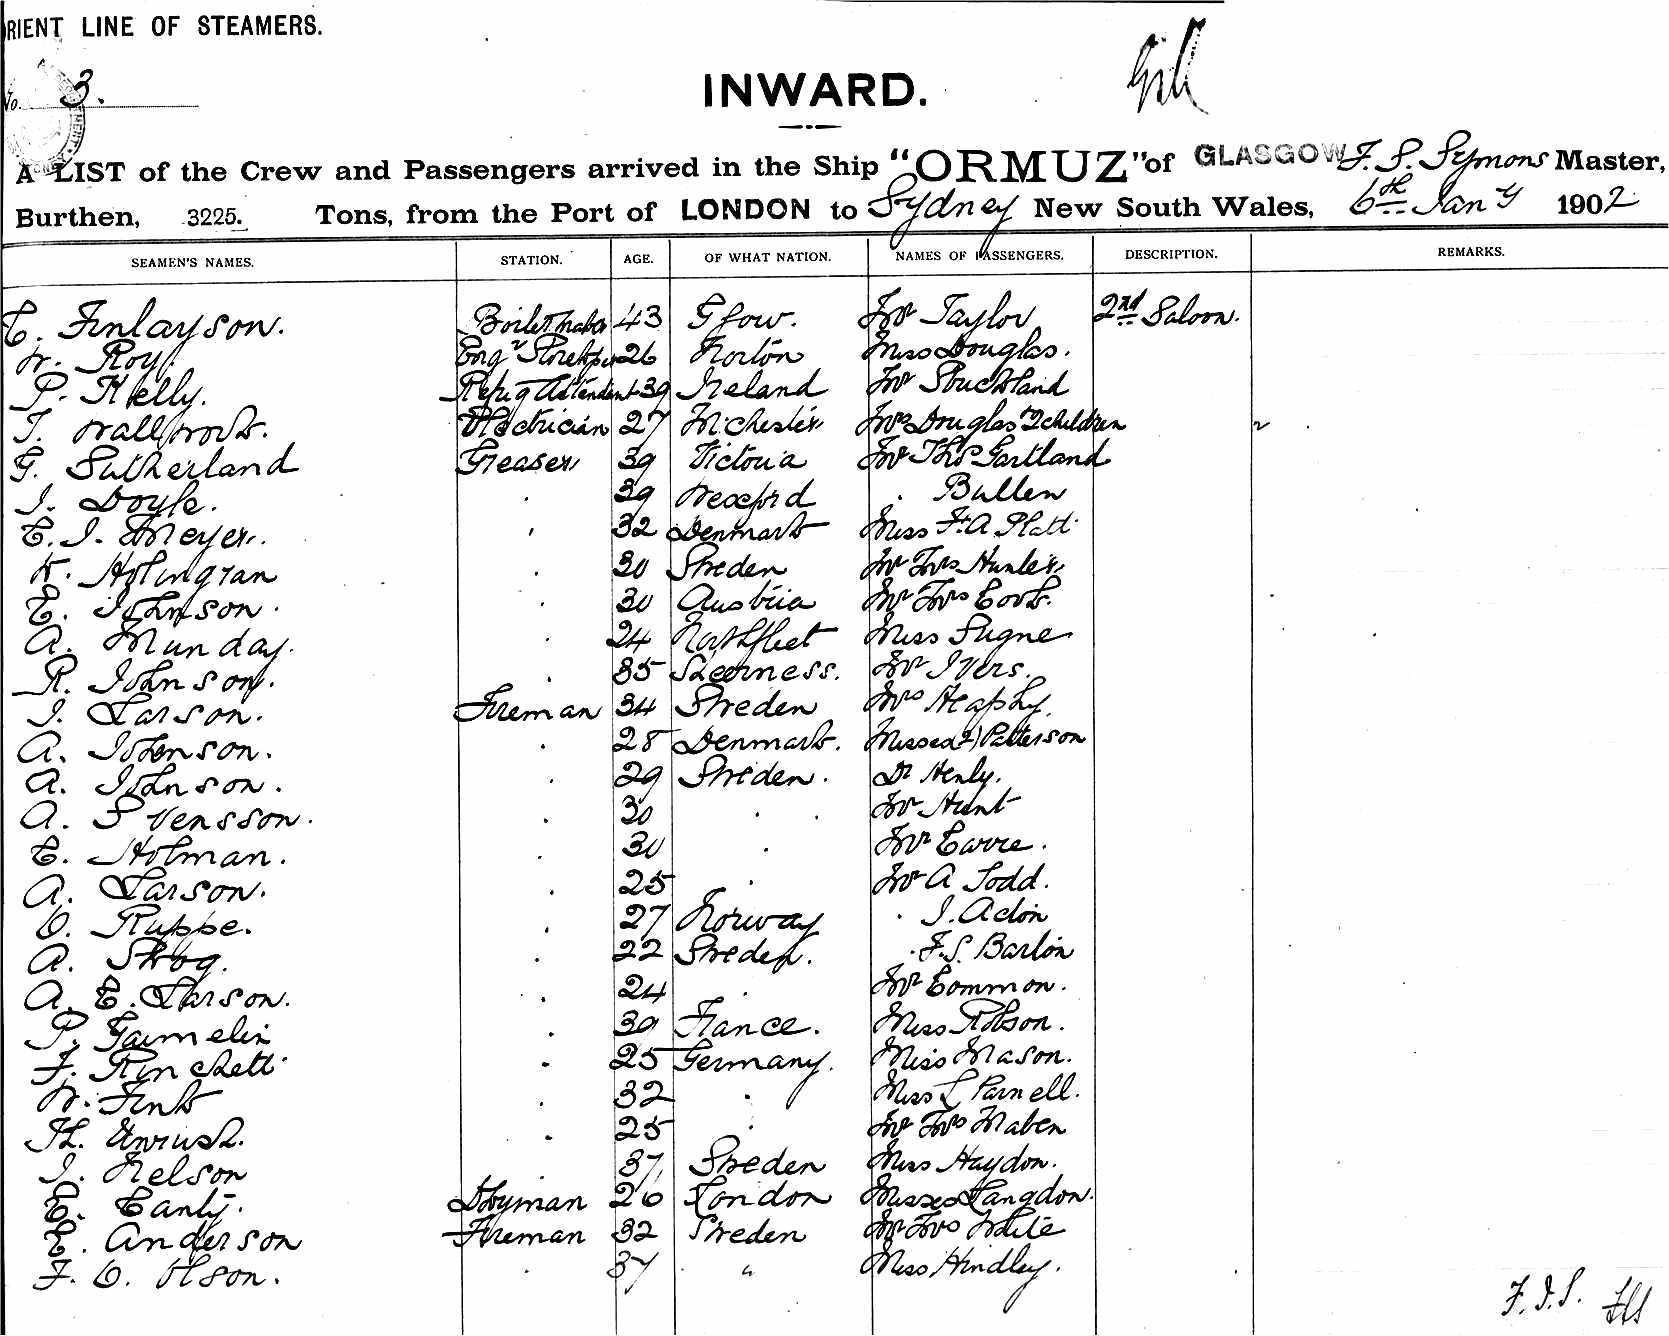 ORIENT LINE OF STEAMERS.
Gill
No. 3.
INWARD.
A LIST of the Crew and Passengers arrived in the Ship "ORMUZ" of GLASGOW F. S. Symons Master,
Burthen, 3225. Tons, from the Port of LONDON to Sydney New South Wales, 6th Jany 1902
SEAMEN'S NAMES. STATION. AGE. OF WHAT NATION. NAMES OF PASSENGERS. DESCRIPTION. REMARKS.
C. Finlayson. Boilermaker 43 Gfow. Mr Taylor 2nd Saloon.
W. Roy. Engr Storekpr 26 Norton Miss Douglas.
P. Kelly. Refrig Attendant 39 Ireland Mr Strickland
T. Electrician 27 M'chester Mrs Douglas & 2 children
G. Sutherland Greaser 39 Victoria Mr Thos Gartland
J. Doyle. . 39 Wexford . Bullen
C. J. Meyer. . 32 Denmark Miss F. A. Platt
K. Holmgran . 30 Sweden Mr Mrs Hunter
C. Johnson. . 30 Austria Mr Mrs Cork.
A. Munday. . 24 Northfleet Miss Sugne
R. Johnson. . 35 Sheerness. Mr Ivers.
J. Larson. Fireman 34 Sweden Mrs Heaphy.
A. Johnson. . 28 Denmark. Misses (2) Patterson
A. Johnson. . 29 Sweden. Dr Henly.
A. Svensson. . 30 . . Mr Hunt
C. Holman. . 30 . Mr Carre.
A. Larson. . 25 . Mr A Todd.
O. Ruppe. . 27 Norway . J. Acton
A. Skog. . 22 Sweden. . F. S. Barton
A. C. Larson. . 24 . Mr Common.
P. Gamelin . 30 France. Miss Robson.
F. Rinchett . 25 Germany. Miss Mason.
W. Fink . 32 . Miss L Parnell.
H. Unrush. . 25 . Mr Mrs Maben
J. Nelson . 37 Sweden Miss Haydon.
C. Canty. Dkyman 26 London Misses Langdon.
C. Anderson Fireman 32 Sweden Mr Mrs White
F. O. Olson. . 37 " Miss Hindley.
F.J.S.